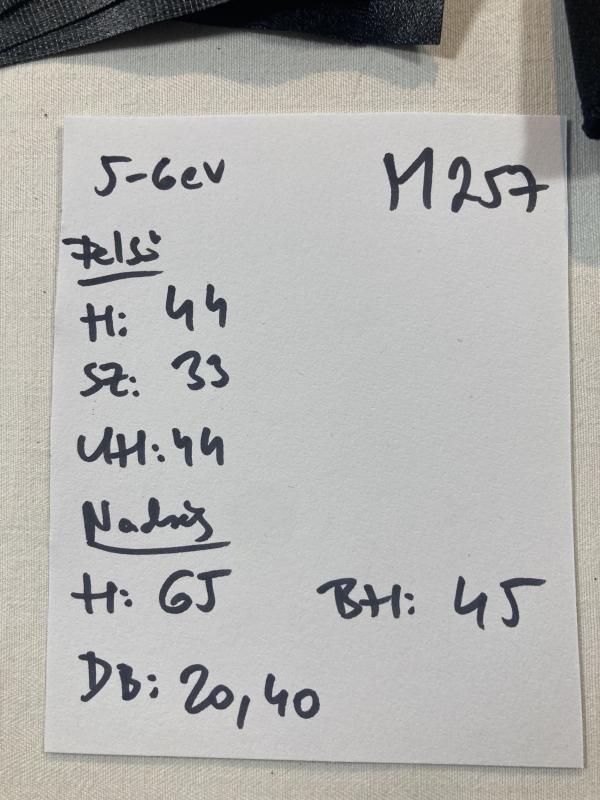 5-6ev M257
Felső
H: 44
SZ: 33
UH: 44
Nadrág
H: 65 BH: 45
DB: 20,40